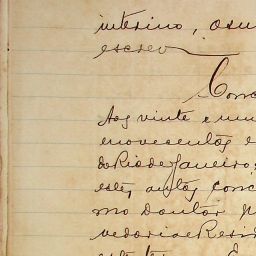 interino, o su
escrevo
Conc
Aos vinte e um
e novecentos e
do Rio de Janeiro,
estes autos conc
mo Doutor P
vedoria e Resi